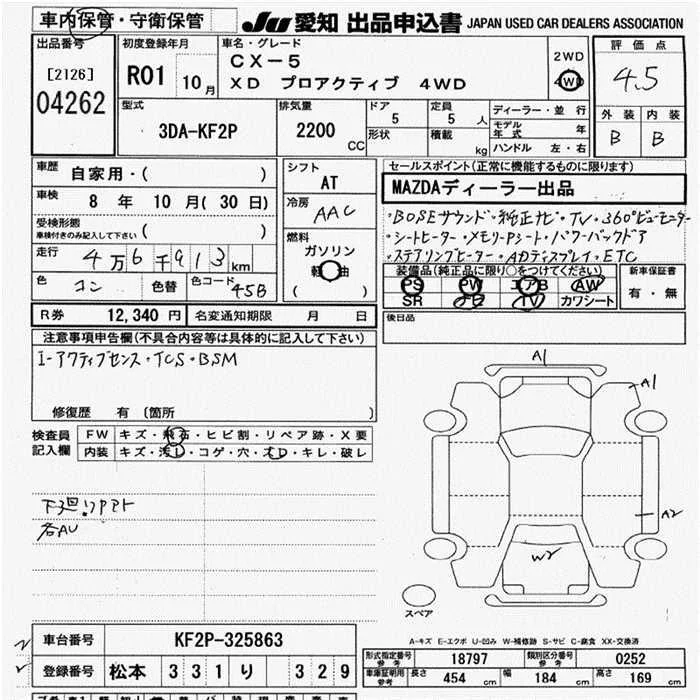 車内保管・守衛保管
JU 愛知 出品申込書 JAPAN USED CAR DEALERS ASSOCIATION
出品番号 [2126] 04262
初度登録年月 R01 10月
車名・グレード CX-5
XD プロアクティブ 4WD
2WD
4WD
評価点 4.5
外装 内装
B B
型式 3DA-KF2P
排気量 2200 CC
ドア 5
形状
定員 5 人
積載 kg
ディーラー・並行
モデル年式 年
ハンドル 左・右
車歴 自家用・( )
車検 8 年 10 月( 30 日)
受検形態
車検付きのみ記入して下さい ( )
走行 4万6千913km
色 コン 色替 色コード 45B
シフト AT
冷房 AAC
燃料 ガソリン
軽油
( )
セールスポイント(正常に機能するものに限ります)
MAZDAディーラー出品
・BOSEサウンド・純正ナビ・TV・360°ビューモニター
・シートヒーター・メモリーPシート・パワーバックドア
・ステアリングヒーター・ADディスプレイ・ETC
装備品(純正品に限り○をつけてください)
PS PW エアB AW
SR ナビ TV カワシート
新車保証書
有・無
R券 12,340 円 名変通知期限 月 日
後日品
注意事項申告欄(不具合内容等は具体的に記入して下さい)
I-アクティブセンス・TCS・BSM
修復歴 有 〔箇所 〕
検査員記入欄 FW キズ・飛石・ヒビ割・リペア跡・X要
内装 キズ・汚レ・コゲ・穴・スレ・キレ・破レ
下廻リ
各AU
A1
A1
A2
W2
スペア
A-キズ E-エクボ U-凹み W-補修跡 S-サビ C-腐食 XX-交換済
車台番号 KF2P-325863
登録番号 松本 331 り 329
形式指定番号 参考 18797 類別区分番号 参考 0252
車庫証明用 参考 長さ 454 cm 幅 184 cm 高さ 169 cm